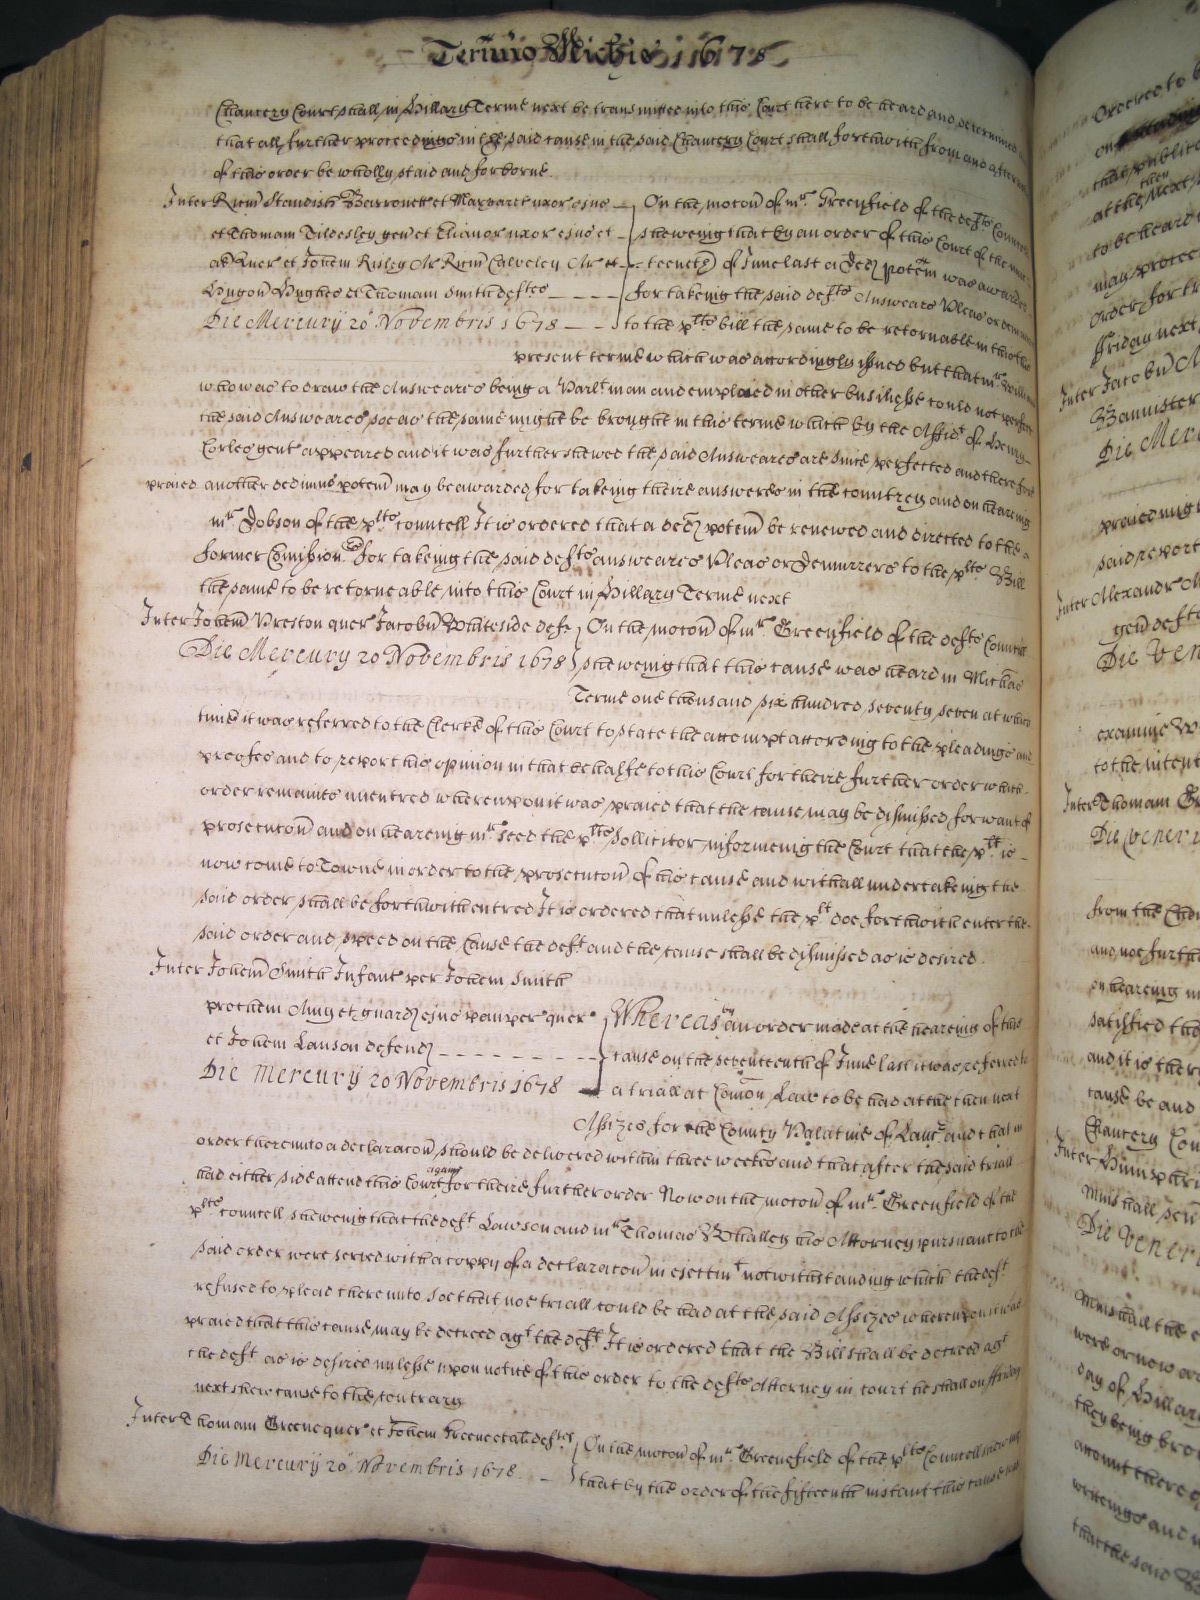 Termino Michis 1678
Chancery Court shall in Hillary Terme next be transmitted into this Court here to be heard and determined
that all further proceedings in the said cause in the said Chancery Court shall forthwith from and after
of this order be wholly staid and forborne.
Inter Ricm Standish Barronett et Margaret uxor ejus
et Thomam Tildesley gen et Elianor uxor ejus et
Quer et Johem Risley Ar Ricm Calveley Ar et
Hugon Hughes et Thomam Smith defts
Die Mercurÿ 20 Novembris 1678
On the moton of mr Greenfield of the defts Councell
shewing that by an order of this Court of the
teenth of June last a Ded potem was awarded
for takeing the said defts Answeares Pleas or
to the plts bill the same to be retornable in this
present terme which was accordingly issued but that mr
who was to draw the Answeares being a Parlt man and emploied in other busines could not perfect
the said Answeares soe as the same might be brought in this terme which by the Affidt of Henry
Corles gent appeared and it was further shewed the said Answeares are since perfected and therefore
praied another dedimus potem may be awarded for takeing theire answeres in the countrey and on heareing
mr Dobson of the plts councell It is ordered that a ded potem be renewed and directed to the
former Comission for takeing the said defts answeares Pleas or Demurrers to the plts Bill
the same to be retorneable into this Court in Hillary Terme next
Inter Johem Preston quer Jacobu Whiteside deft
Die Mercury 20 Novembris 1678
On the moton of mr Greenfield of the defts Councell
shewing that this cause was heard in Michas
Terme one thousand six hundred seventy seven at which
time it was referred to the Clerke of this Court to state the accompt according to the pleadings and
proofes and to report his opinion in that behalfe to this Court for theire further order which
order remaines unentred whereupon it was praied that the cause may be dismissed for want of
prosecuton and on heareing mr Seed the plts Sollicitor informeing the Court that the plt is
now come to Towne in order to the prosecuton of his cause and withall undertakeing the
said order shall be forthwith entred It is ordered that unlesse the plt doe forthwith enter the
said order and speed on the Cause the deft and the cause shall be dismissed as is desired
Inter Johem Smith Infant per Johem Smith
prochem Amy et guard ejus pauper quer
et Johem Lauson defend
Die Mercurÿ 20 Novembris 1678
Whereas by an order made at the heareing of this
cause on the seventeenth of June last it was referred to
a triall at Comon Law to be had at the then next
Assizes for the County Palatine of Lancr and that in
order thereunto a declaraton should be delivered within three weekes and that after the said triall
had either side attend this Court again for theire further order Now on the moton of mr Greenfield of the
plts councell shewing that the deft Lawson and mr Thomas Whalley his Attorney pursuant to the
said order were served with a coppy of a declaraton in ejectmt notwithstanding which the deft
refused to plead thereunto soe that noe triall could be had at the said Assizes whereupon it was
praied that this cause may be decreed agt the deft It is ordered that the Bill shall be decreed agt
the deft as is desired unlesse upon notice of this order to the defts Attorney in court he shall on ffriday
next shew cause to the contrary
Inter Thomam Greene quer et Johem Greene et al defts
Die Mercurÿ 20 Novembris 1678
On the moton of mr Greenfield of the plts Councell shewing
that by the order of the fifteenth instant this cause was
Ordered to
on
that
then
at the next
to be heard
may proceed
Order for
ffriday next
Inter Jacobu
Bannister
Die Mer
praied
said report
Inter Alexandr
gen defts
Die Ven
examine
to the intent
Inter Thomam
Die Veneri
from the
and noe further
on heareing
satisfied the
and it is ther
cause be and
Chancery Cou
Inter Humphri
Minshall
Die Vener
Minshall the
were or now
day of Hillar
they being bro
account there
writeings and
that the said